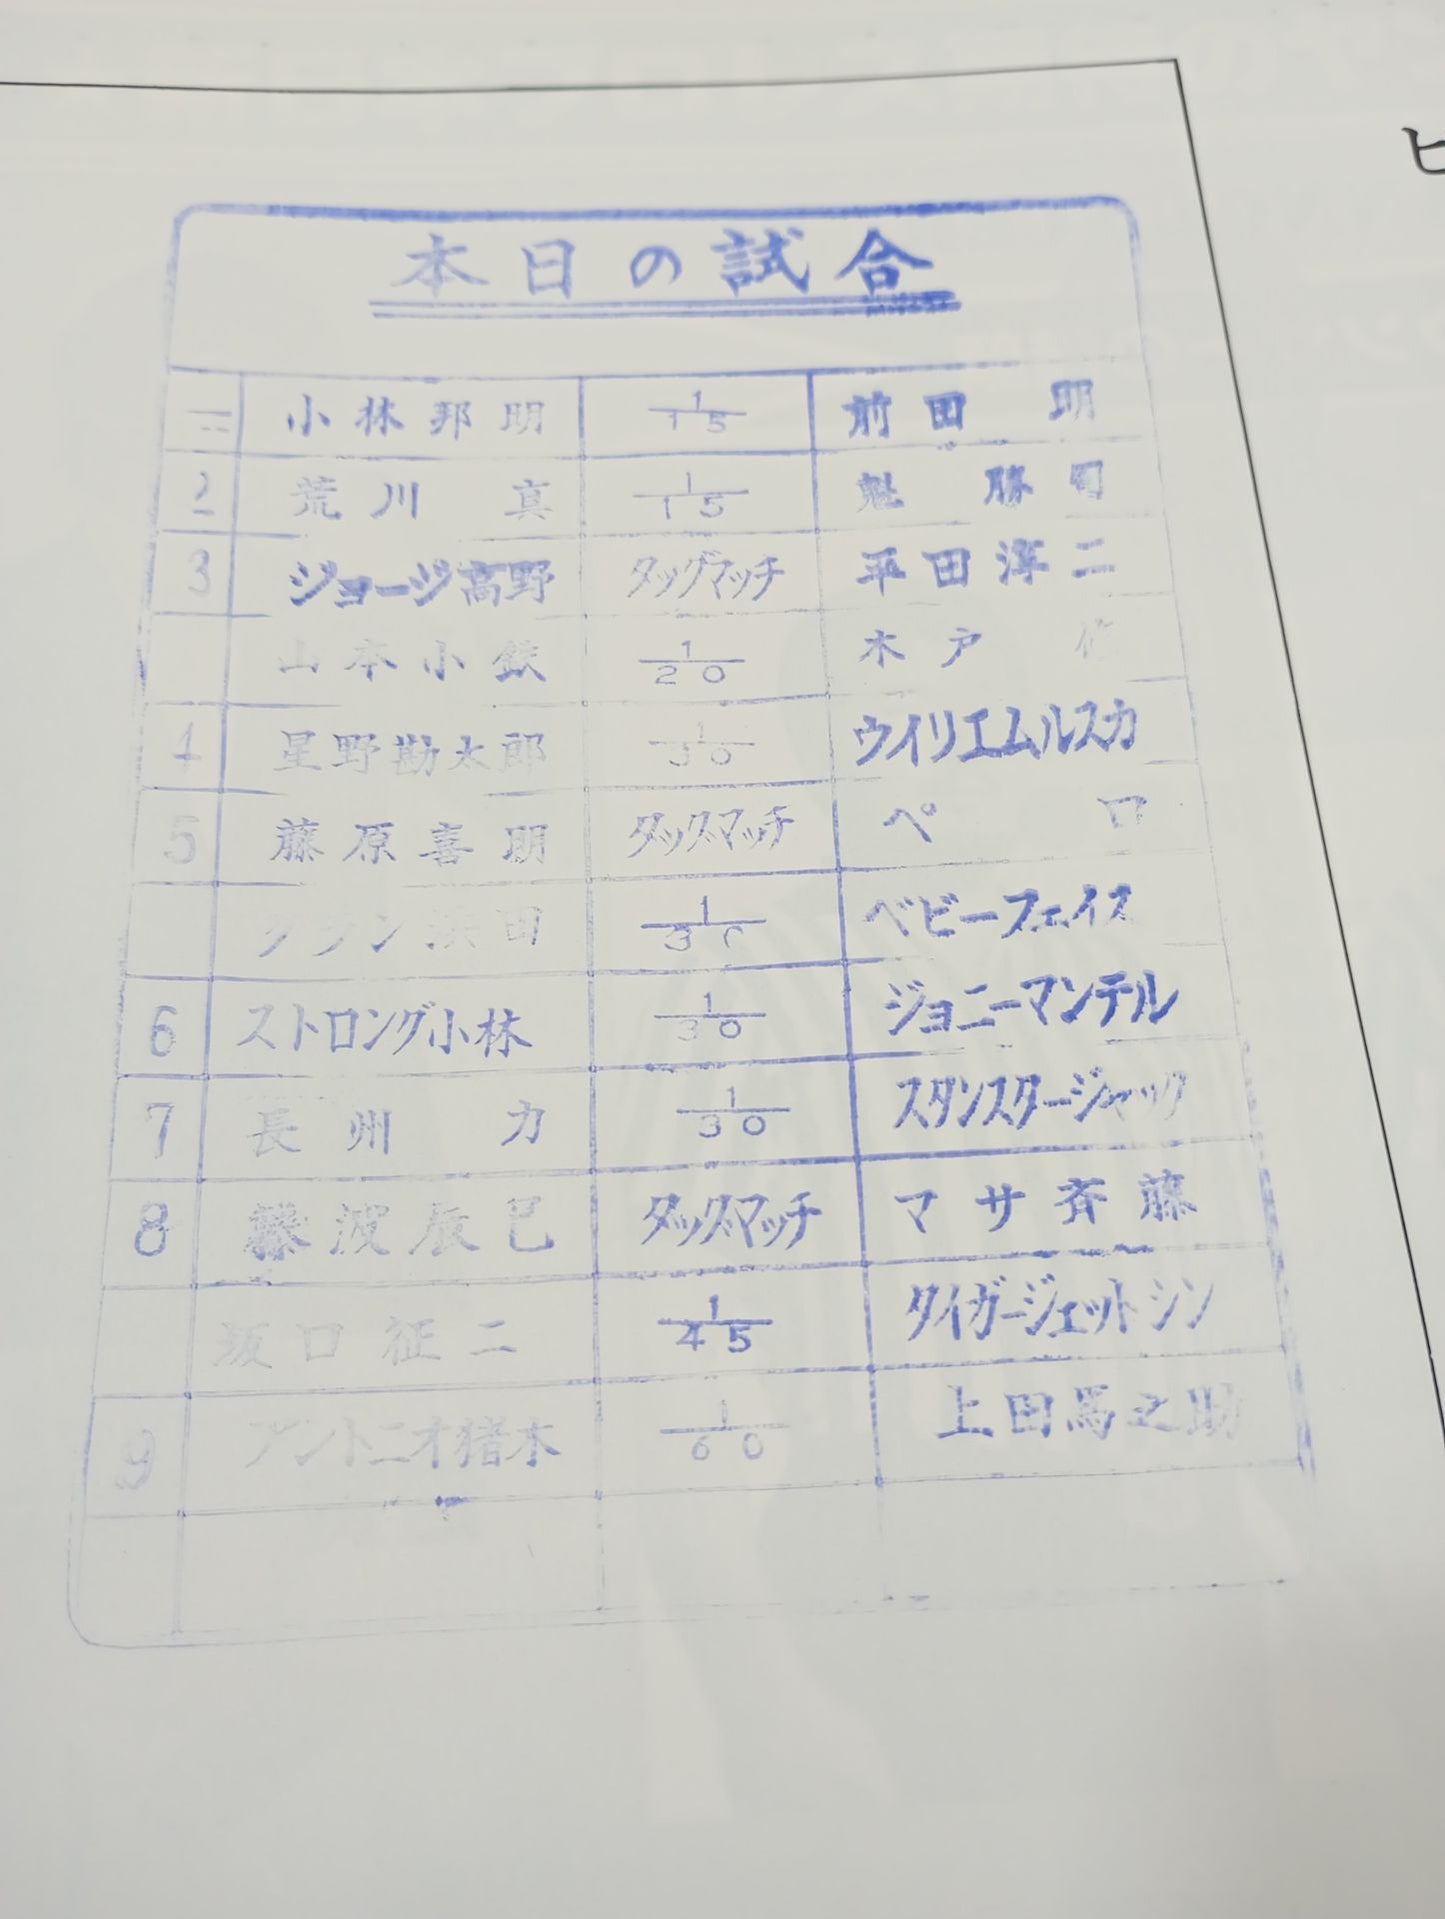 本日の試合
小林邦明 1/15 前田 明
2 荒川 真 1/15 魁 勝司
3 ジョージ高野 タッグマッチ 平田淳二
山本小鉄 1/20 木戸 修
4 星野勘太郎 1/30 ウイリエムルスカ
5 藤原喜明 タッグマッチ ペロ
グラン浜田 1/30 ベビーフェイス
6 ストロング小林 1/30 ジョニーマンテル
7 長州 力 1/30 スタンスタージャック
8 藤波辰巳 タッグマッチ マサ斉藤
坂口征二 1/45 タイガージェットシン
9 アントニオ猪木 1/60 上田馬之助
ヒ